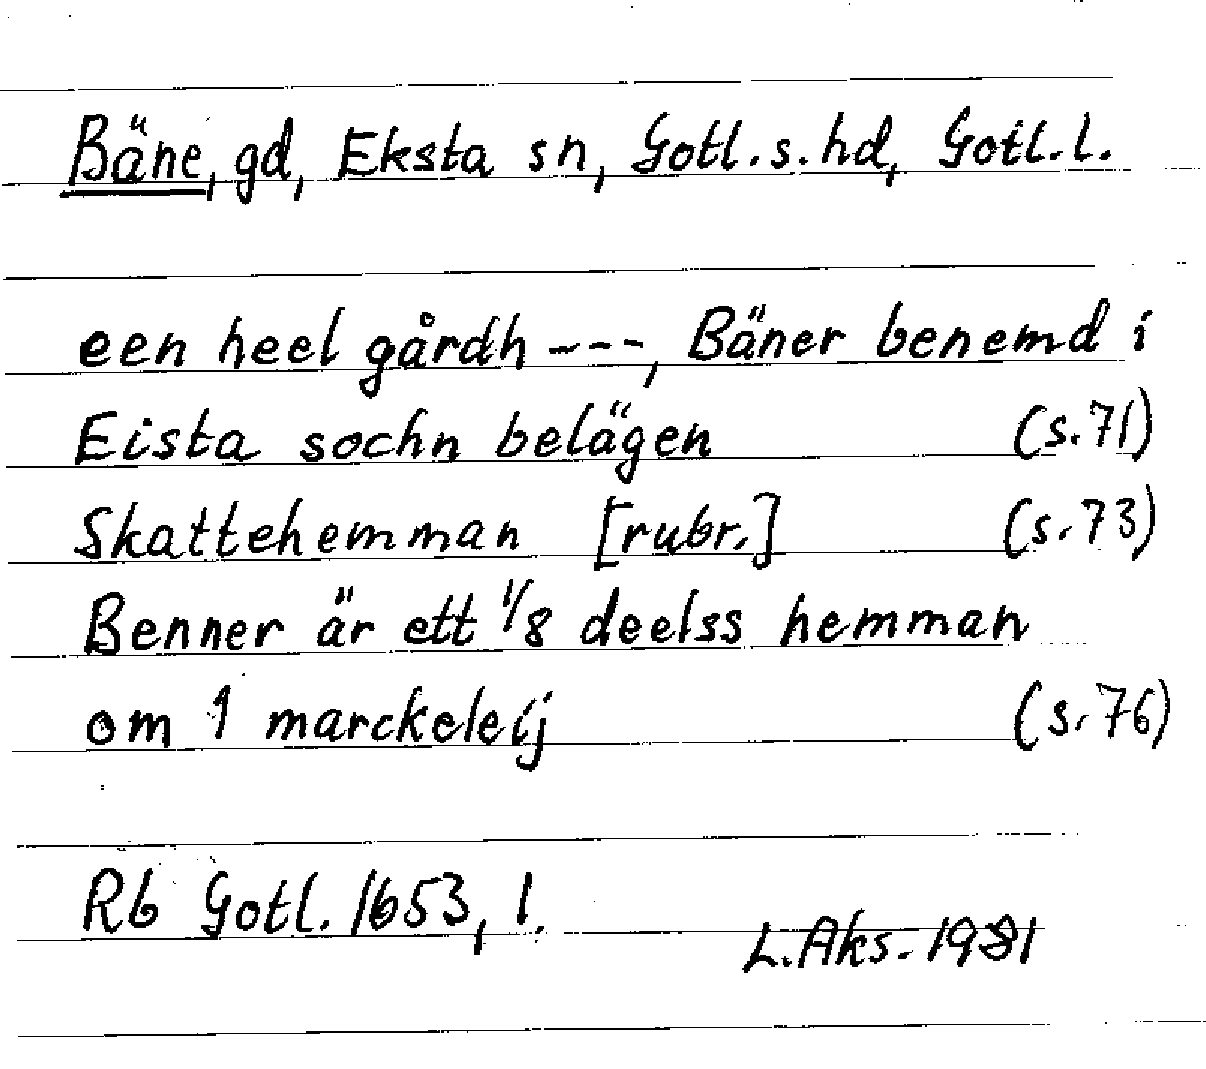 Bäne, gd, Eksta sn, Gotl.s.hd, Gotl.l.
een heel gårdh ---, Bäner benemd i
Eista sochn belägen (s.71)
Skattehemman [rubr.] (s.73)
Benner är ett 1/8 deelss hemman
om 1 marckeleij (s.76)
Rb Gotl. 1653, 1.
L.Aks. 1981